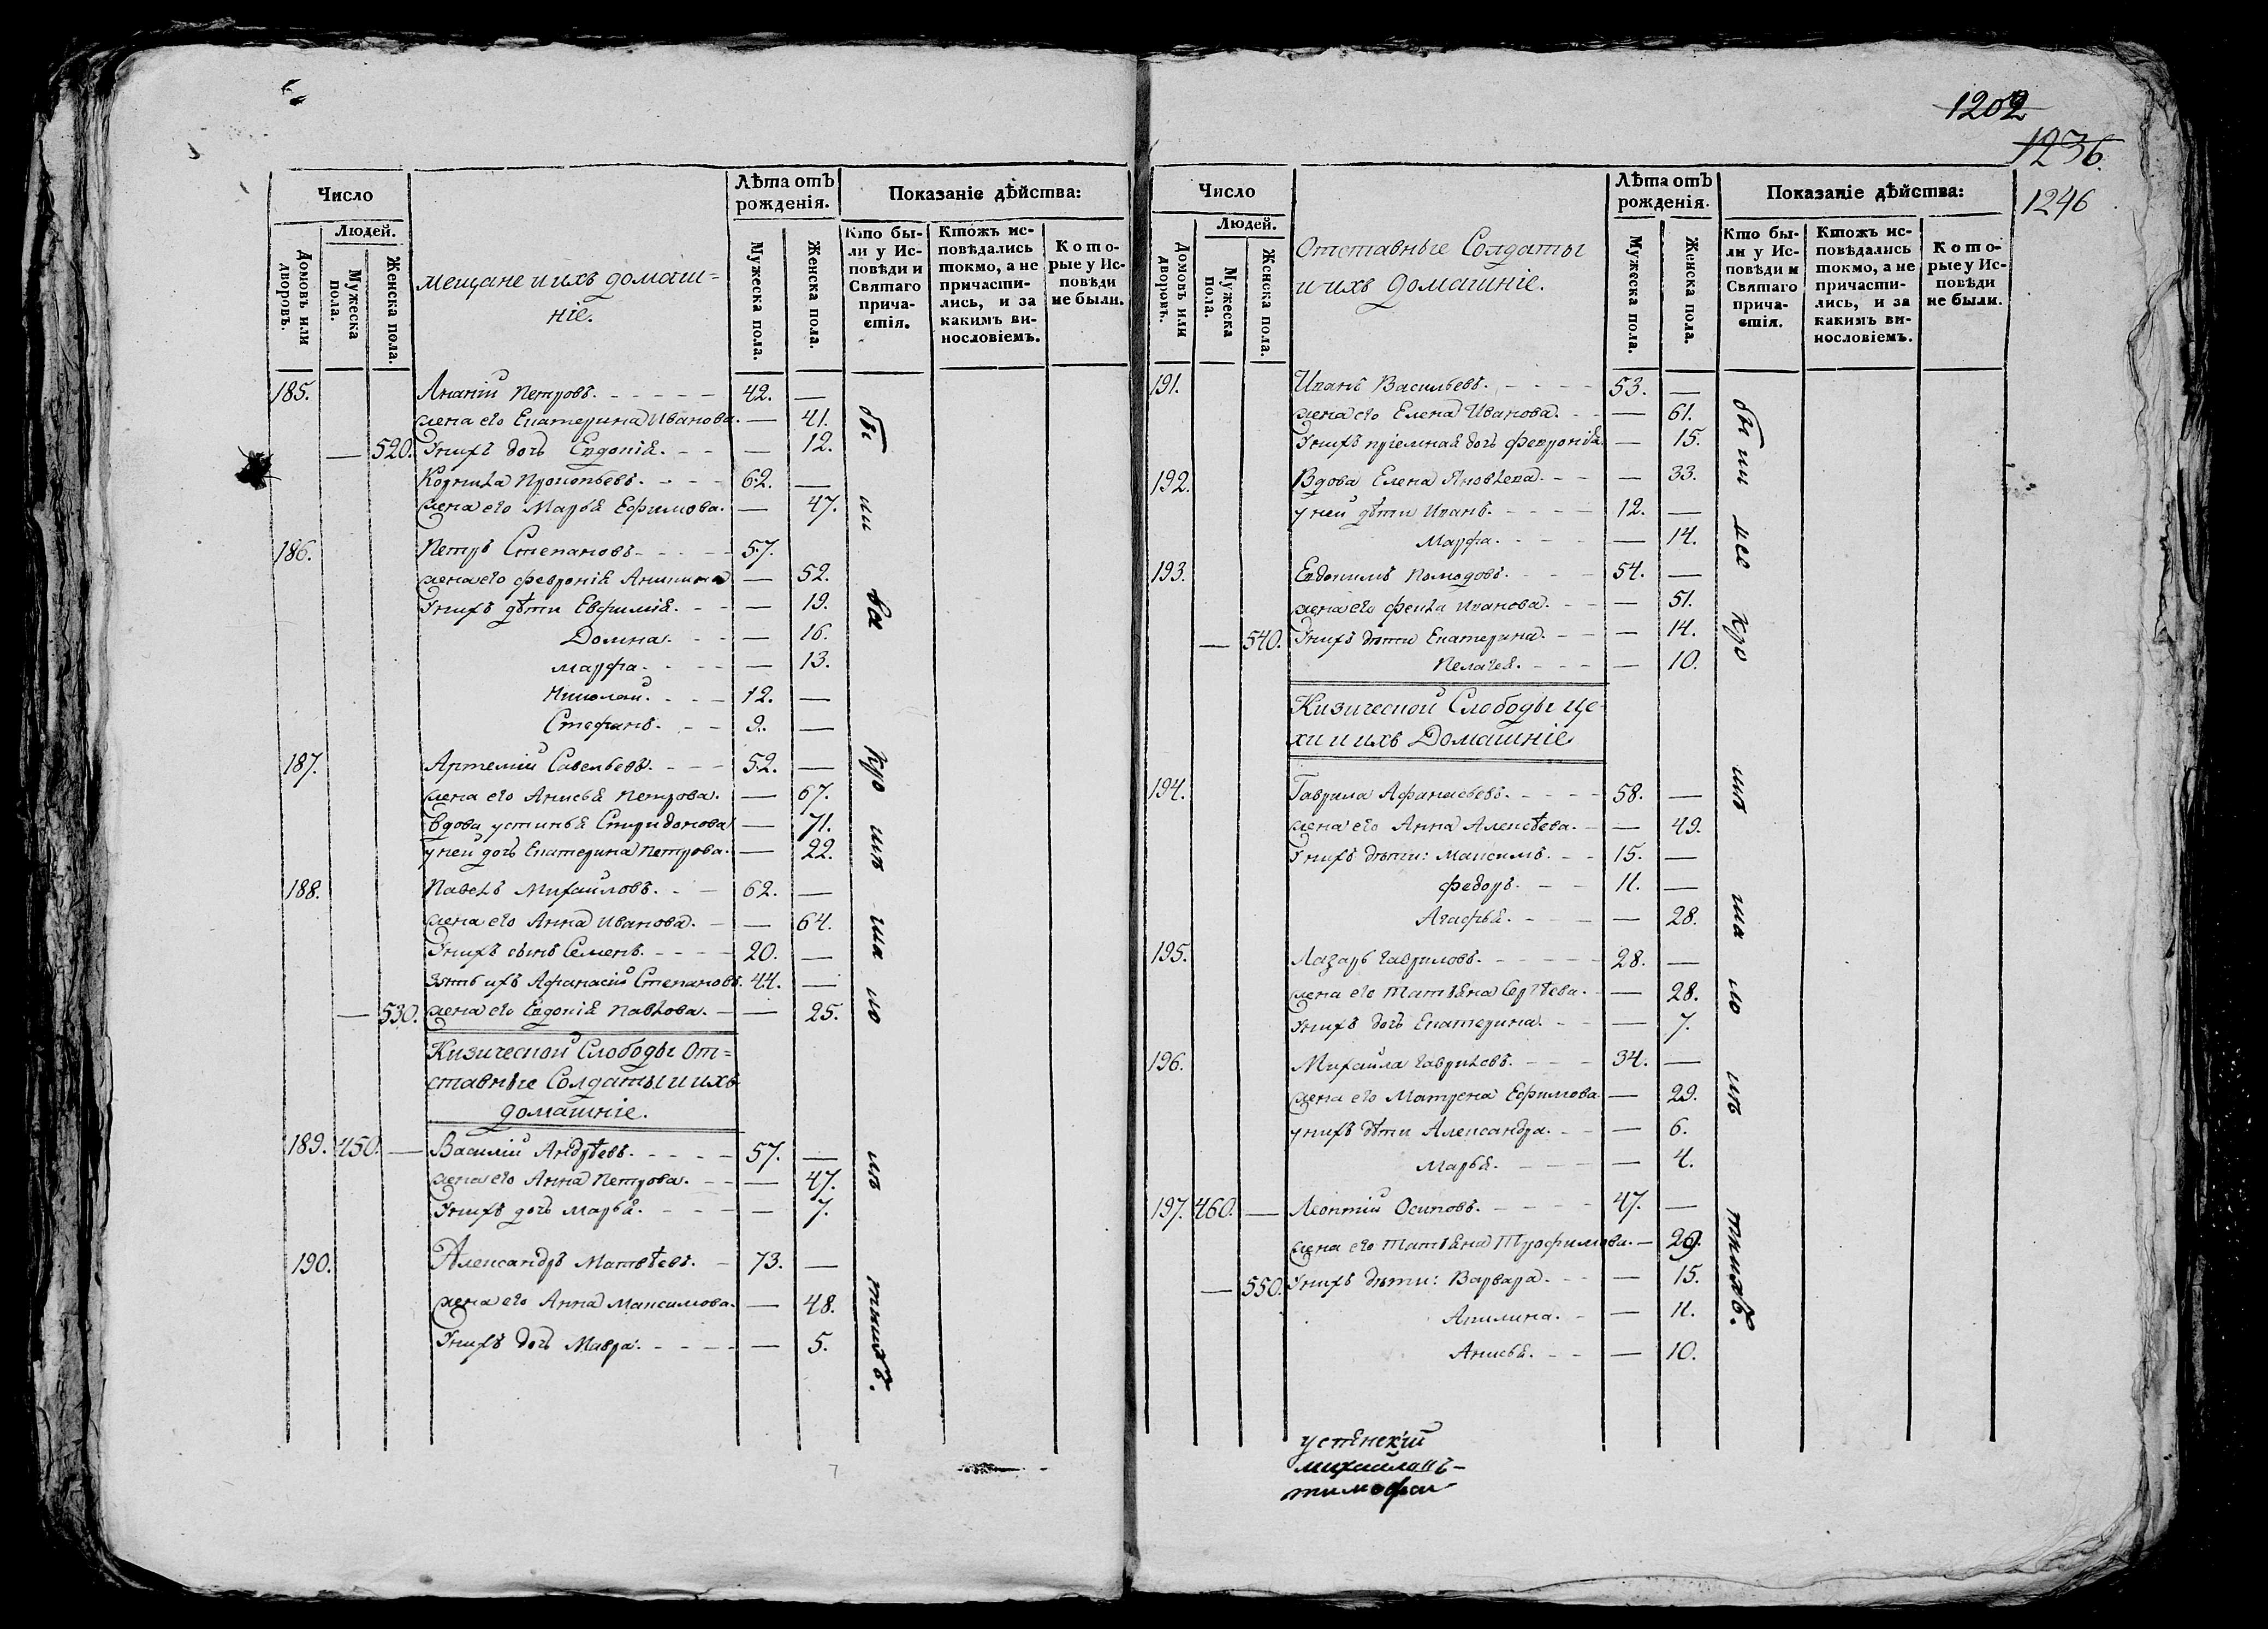 Число
Людей.
Домовъ или дворовъ.
Мужеска пола.
Женска пола.
мещане и ихъ домаш=
ніе.
Лѣта отъ
рожденія.
Мужеска пола.
Женска пола.
Показаніе дѣйства:
Кто бы-
ли у Ис-
повѣди и
Святаго
прича-
стія.
Ктожъ ис-
повѣдались
токмо, а не
причасти-
лись, и за
какимъ ви-
нословіемъ.
Кото-
рые у Ис-
повѣди
не были.
185. Ананій Петровъ. 42. —
жена его Екатерина Иванова. — 41.
— 520. У нихъ дочь Евдокія. — 12.
Корнила Прокопьевъ. 62. —
жена его Марья Ефимова. — 47.
186. Петръ Степановъ 57.
жена его Февронія — 52.
У нихъ дѣти Евфимія. — 19.
Домна. — 16.
марфа. — 13.
Николай. 12. —
Стефанъ. 9. —
187. Артемій Савельевъ. 52. —
жена его Анисья Петрова. — 67.
вдова устинья Спиридонова — 71.
у ней дочь Екатерина Петрова. — 22.
188. Павелъ Михайловъ. 62. —
жена его Анна Иванова. — 64.
У нихъ сынъ Семенъ. 20. —
зять ихъ Афанасій Степановъ. 44. —
— 530. жена его Евдокія Павлова. — 25.
Кизической Слободы От=
ставные Солдаты и ихъ
домашніе.
189. 450. — Василій Андрѣевъ. 57. —
жена его Анна Петрова. — 47.
У нихъ дочь Марья. — 7.
190. Александръ Матвѣевъ. 73. —
жена его Анна Максимова. — 48.
У нихъ дочь Мавра. — 5.
бы
ли
вси
кро
мѣ
ма
ло
лѣ
тныхъ.
1202
1236.
1246
Число
Людей.
Домовъ или дворовъ.
Мужеска пола.
Женска пола.
Отставные Солдаты
и ихъ домашніе.
Лѣта отъ
рожденія.
Мужеска пола.
Женска пола.
Показаніе дѣйства:
Кто бы-
ли у Ис-
повѣди и
Святаго
прича-
стія.
Ктожъ ис-
повѣдались
токмо, а не
причасти-
лись, и за
какимъ ви-
нословіемъ.
Кото-
рые у Ис-
повѣди
не были.
191. Иванъ Васильевъ. 53. —
жена его Елена Иванова. — 61.
У нихъ пріемная дочь Февронія — 15.
192. Вдова Елена Яковлева. — 33.
у ней дѣти Иванъ. 12. —
Марфа. — 14.
193. Евдокимъ 54. —
жена его Фекла Иванова. — 51.
— 540. У нихъ дѣти Екатерина. — 14.
Пелагея. — 10.
Кизической Слободы Це-
хи и ихъ Домашніе
194. Гаврила Афанасьевъ. 58. —
жена его Анна Алексѣева. — 49.
У нихъ дѣти: Максимъ. 15. —
Федоръ. 11. —
Агафья. — 28.
195. Лазарь Гавриловъ. 28. —
жена его Татьяна Сергѣева. — 28.
У нихъ дочь Екатерина. — 7.
196. Михайла Гавриловъ. 34. —
жена его Матрена Ефимова — 29.
у нихъ дѣти Александра. — 6.
Марья. — 4.
197. 460. — Леонтій Осиповъ. 47. —
жена его Татьяна Трофимова. — 29.
— 550. У нихъ дѣти: Варвара. — 15.
Акилина. — 11.
Анисья. — 10.
бы
ли
всѣ
кро
мѣ
ма
ло
лѣ
тныхъ.
михайловъ
тимофеи